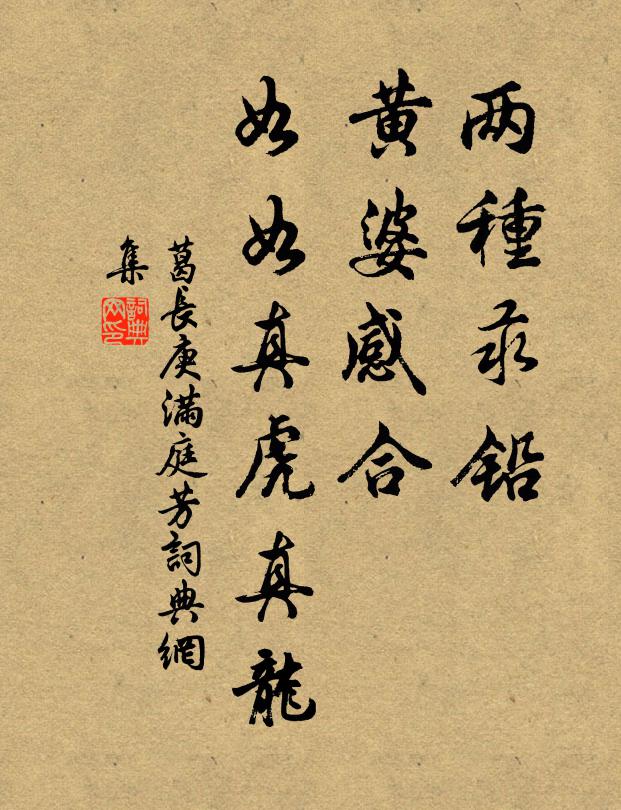 两種汞鉛
黄婆感合
如如真虎真龍
葛長庚滿庭芳詞典網
集
詞典
网印